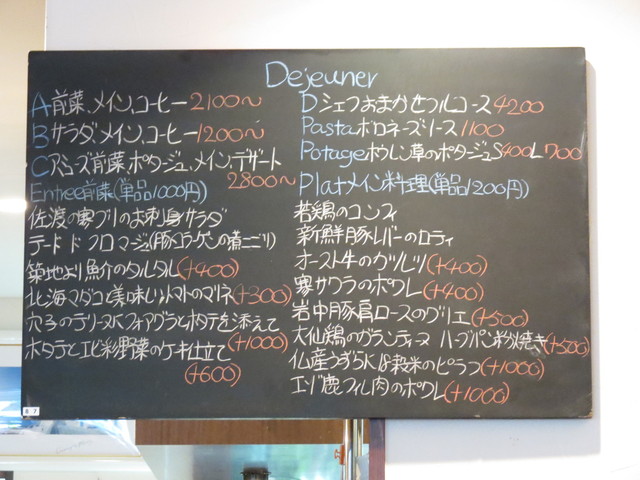 Dejeuner
A 前菜、メイン、コーヒー 2100〜
B サラダ、メイン、コーヒー 1200〜
C アミューズ前菜、ポタージュ、メイン、デザート
2800〜
Entree前菜(単品1000円)
佐渡の寒ブリのお刺身サラダ
テートド フロマージュ(豚コラーゲンの煮こごり)
築地より魚介のタルタル(+400)
北海マダコと美味しいトマトのマリネ(+300)
穴子のテリーヌにフォアグラとホタテを添えて
(+1000)
ホタテとエビ彩野菜のケーキ仕立て
(+600)
D シェフおまかせフルコース 4200
Pasta ボロネーズソース 1100
Potage ホウレン草のポタージュ S400 L700
Plat メイン料理(単品1200円)
若鶏のコンフィ
新鮮豚レバーのロティ
オースト牛のカツレツ(+400)
寒サワラのポワレ(+400)
岩中豚肩ロースのグリエ(+500)
大仙鶏のガランティーヌ ハーブパン粉焼き(+500)
仏産うずらに18穀米のピラフ(+1000)
エゾ鹿フィレ肉のポワレ(+1000)